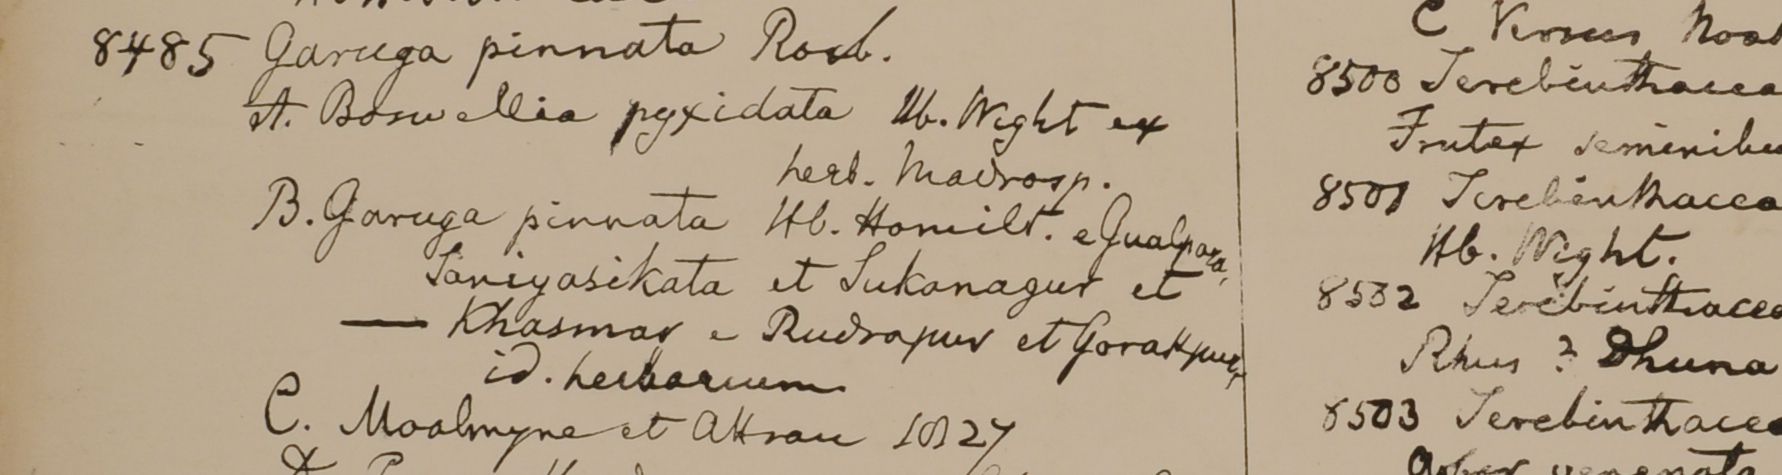 8485 Garuga pinnata Roxb.
A. Boswellia pyxidata Hb. Wight ex
herb. Madrasp.
B. Garuga pinnata Hb. Hamilt. e Gualpara,
Saniyasikata et Sukanagur et
— Khasmar e Rudrapur et Gorakpur,
id. herbarium
C. Moalmyne et Attran 1827
C Versus
8500 Terebinthacea
Frutex seminibu
8501 Terebinthacea
Hb. Wight.
8502 Terebinthacea
Rhus ? Dhuna
8503 Terebinthacea